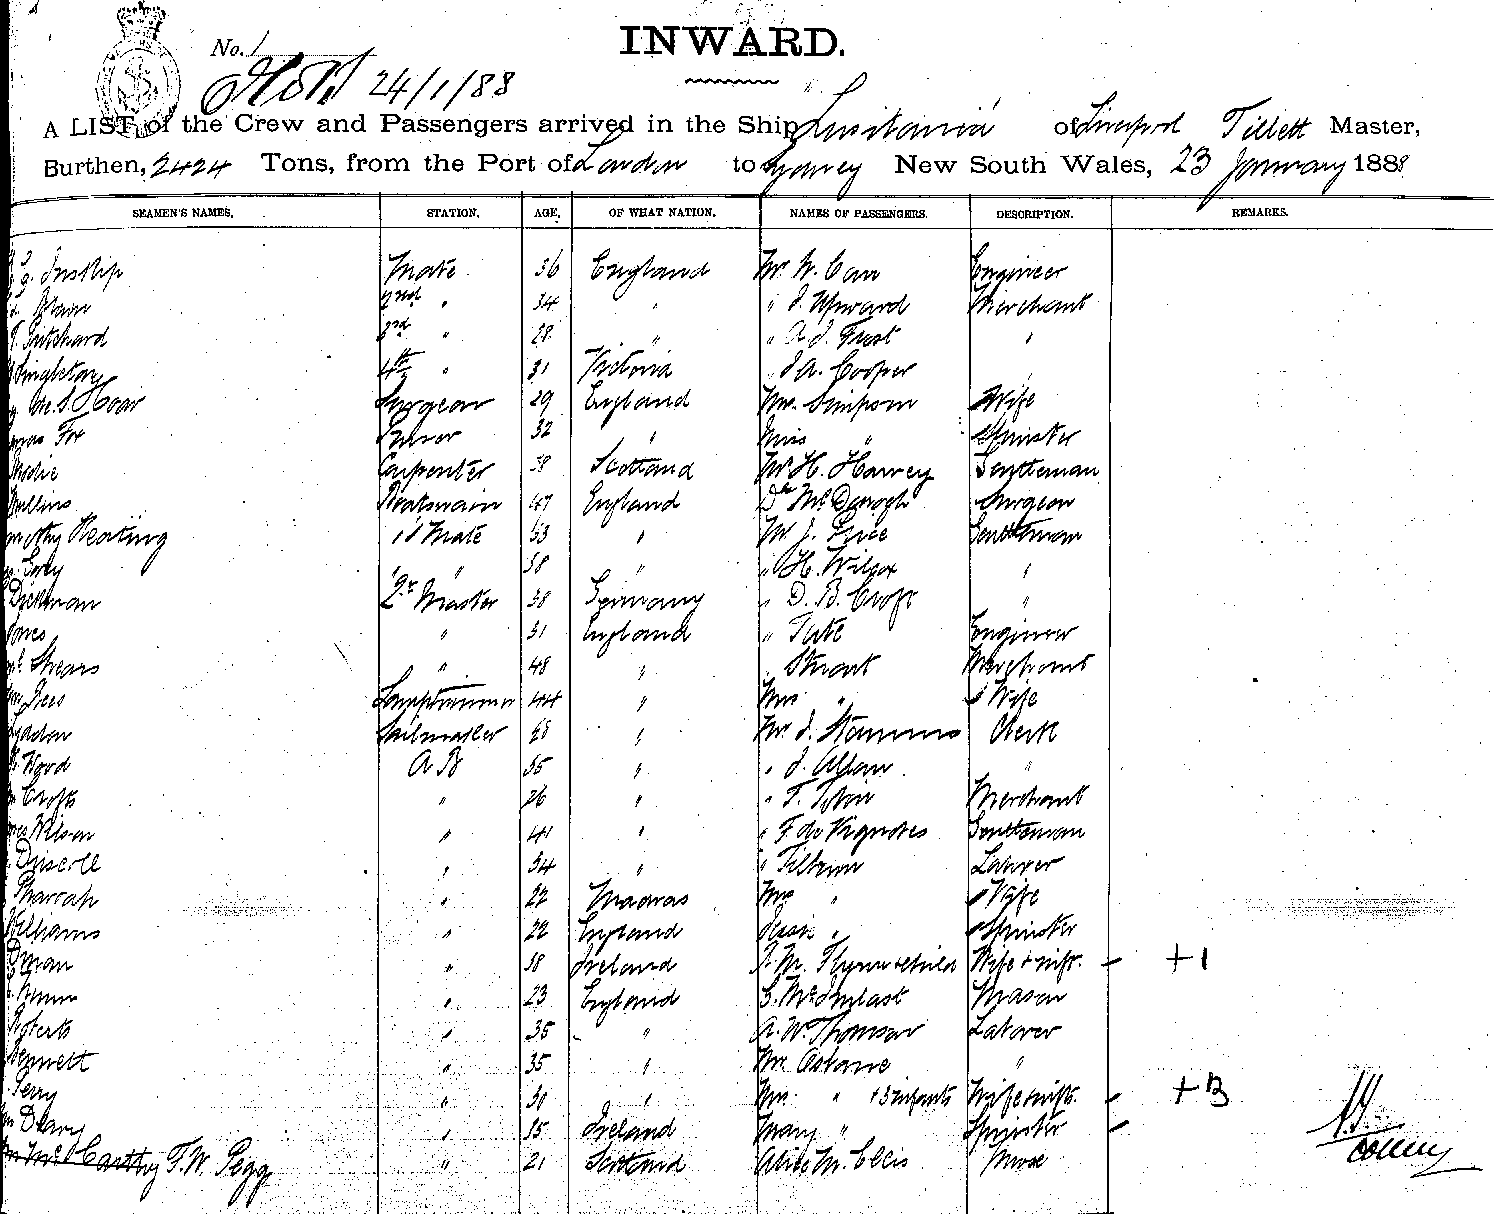 No. 1
24/1/88
INWARD.
A LIST of the Crew and Passengers arrived in the Ship Lusitania of Liverpool Tillett Master,
Burthen, 2424 Tons, from the Port of London to Sydney New South Wales, 23 January 1888
SEAMEN'S NAMES. STATION. AGE. OF WHAT NATION. NAMES OF PASSENGERS. DESCRIPTION. REMARKS.
Inskip Mate 36 England Mr. W. Carr Engineer
2nd " 34 " " J. Upward Merchant
Pritchard 3rd " 28 " " A. J. Frost "
Singleton 4th " 31 Victoria " J A. Cooper "
Hoar Surgeon 29 England Mrs. Simpson Wife
Fox Purser 32 " Miss " Spinster
Carpenter 38 Scotland Mr H. Harvey Gentleman
Mullins Boatswain 47 England Dr McDonogh Surgeon
Keating " Mate 53 " Mr J. Price Gentleman
" " 58 " " H. Wilcox "
Dickman Qr Master 38 Germany " D. B. Croft "
Jones " 31 England " Tate Engineer
Shears " 48 " " Stuart Merchant
Rees Lamptrimmer 44 " Mrs " Wife
Sailmaker 68 " Mr J. Clerk
Wood A B 55 " " J. Allan "
Crofts " 26 " " T. Merchant
Wilson " 41 " " F. de Vignoles Gentleman
Driscoll " 34 " " Laborer
Pharoah " 22 Madras Mrs " Wife
Williams " 22 England " Spinster
" 38 Ireland Flynn & child Wife & inft. - +1
" 23 England Mason
Roberts " 35 " A. W. Thomson Laborer
Bennett " 35 " Mr. Osborne "
Perry " 30 " Mrs " & 3 infants Wife & infts. - +3
Deary " 35 Ireland Mary " Spinster -
McCarthy F. W. Pegg " 21 Scotland Alice M. Ellis Nurse